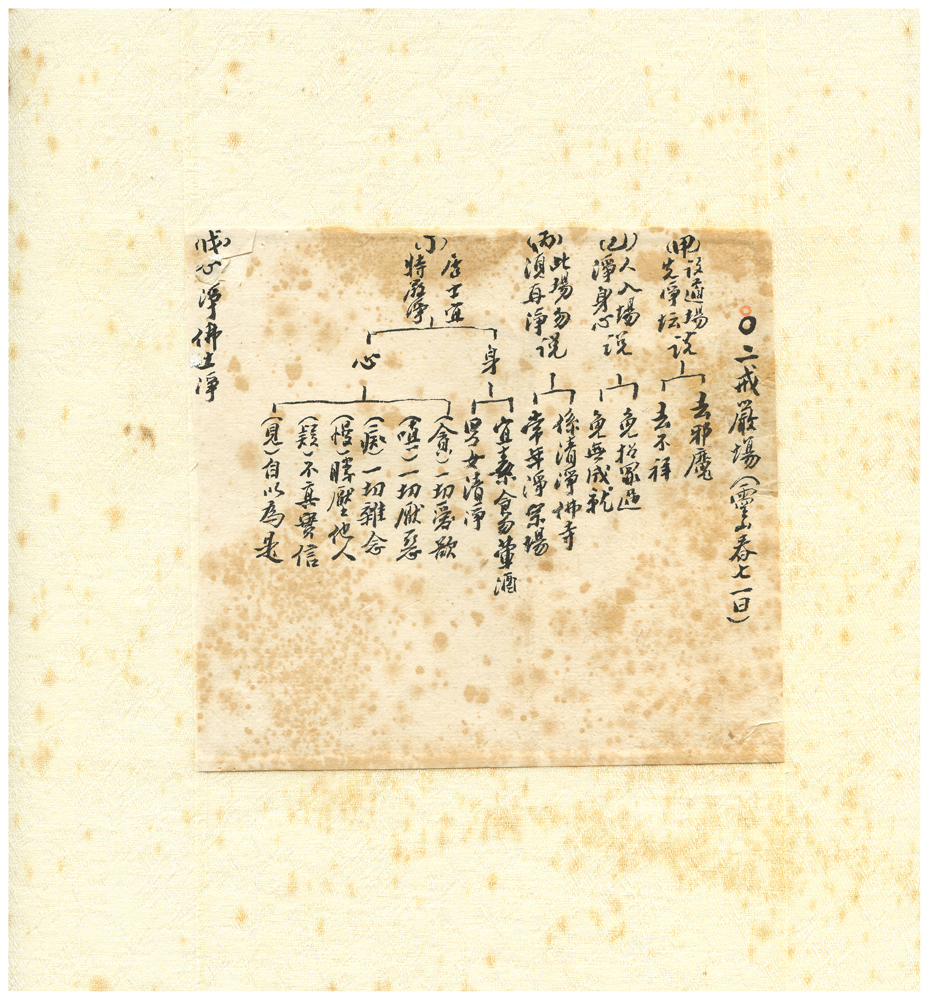 ○二戒嚴場（靈山春七一日）
（甲）設道場
先淨坛説
去邪魔
去不祥
（乙）人入場
淨身心説
免招罪過
免無成就
（丙）此場勿説
須再淨説
係清淨佛寺
常年淨宗場
（丁）居士宜
特嚴淨
身
宜素食勿葷酒
男女清淨
心
（貪）一切愛欲
（嗔）一切厭惡
（痴）一切雜念
（慢）勝壓他人
（疑）不真實信
（見）自以為是
（戊）心淨佛土淨